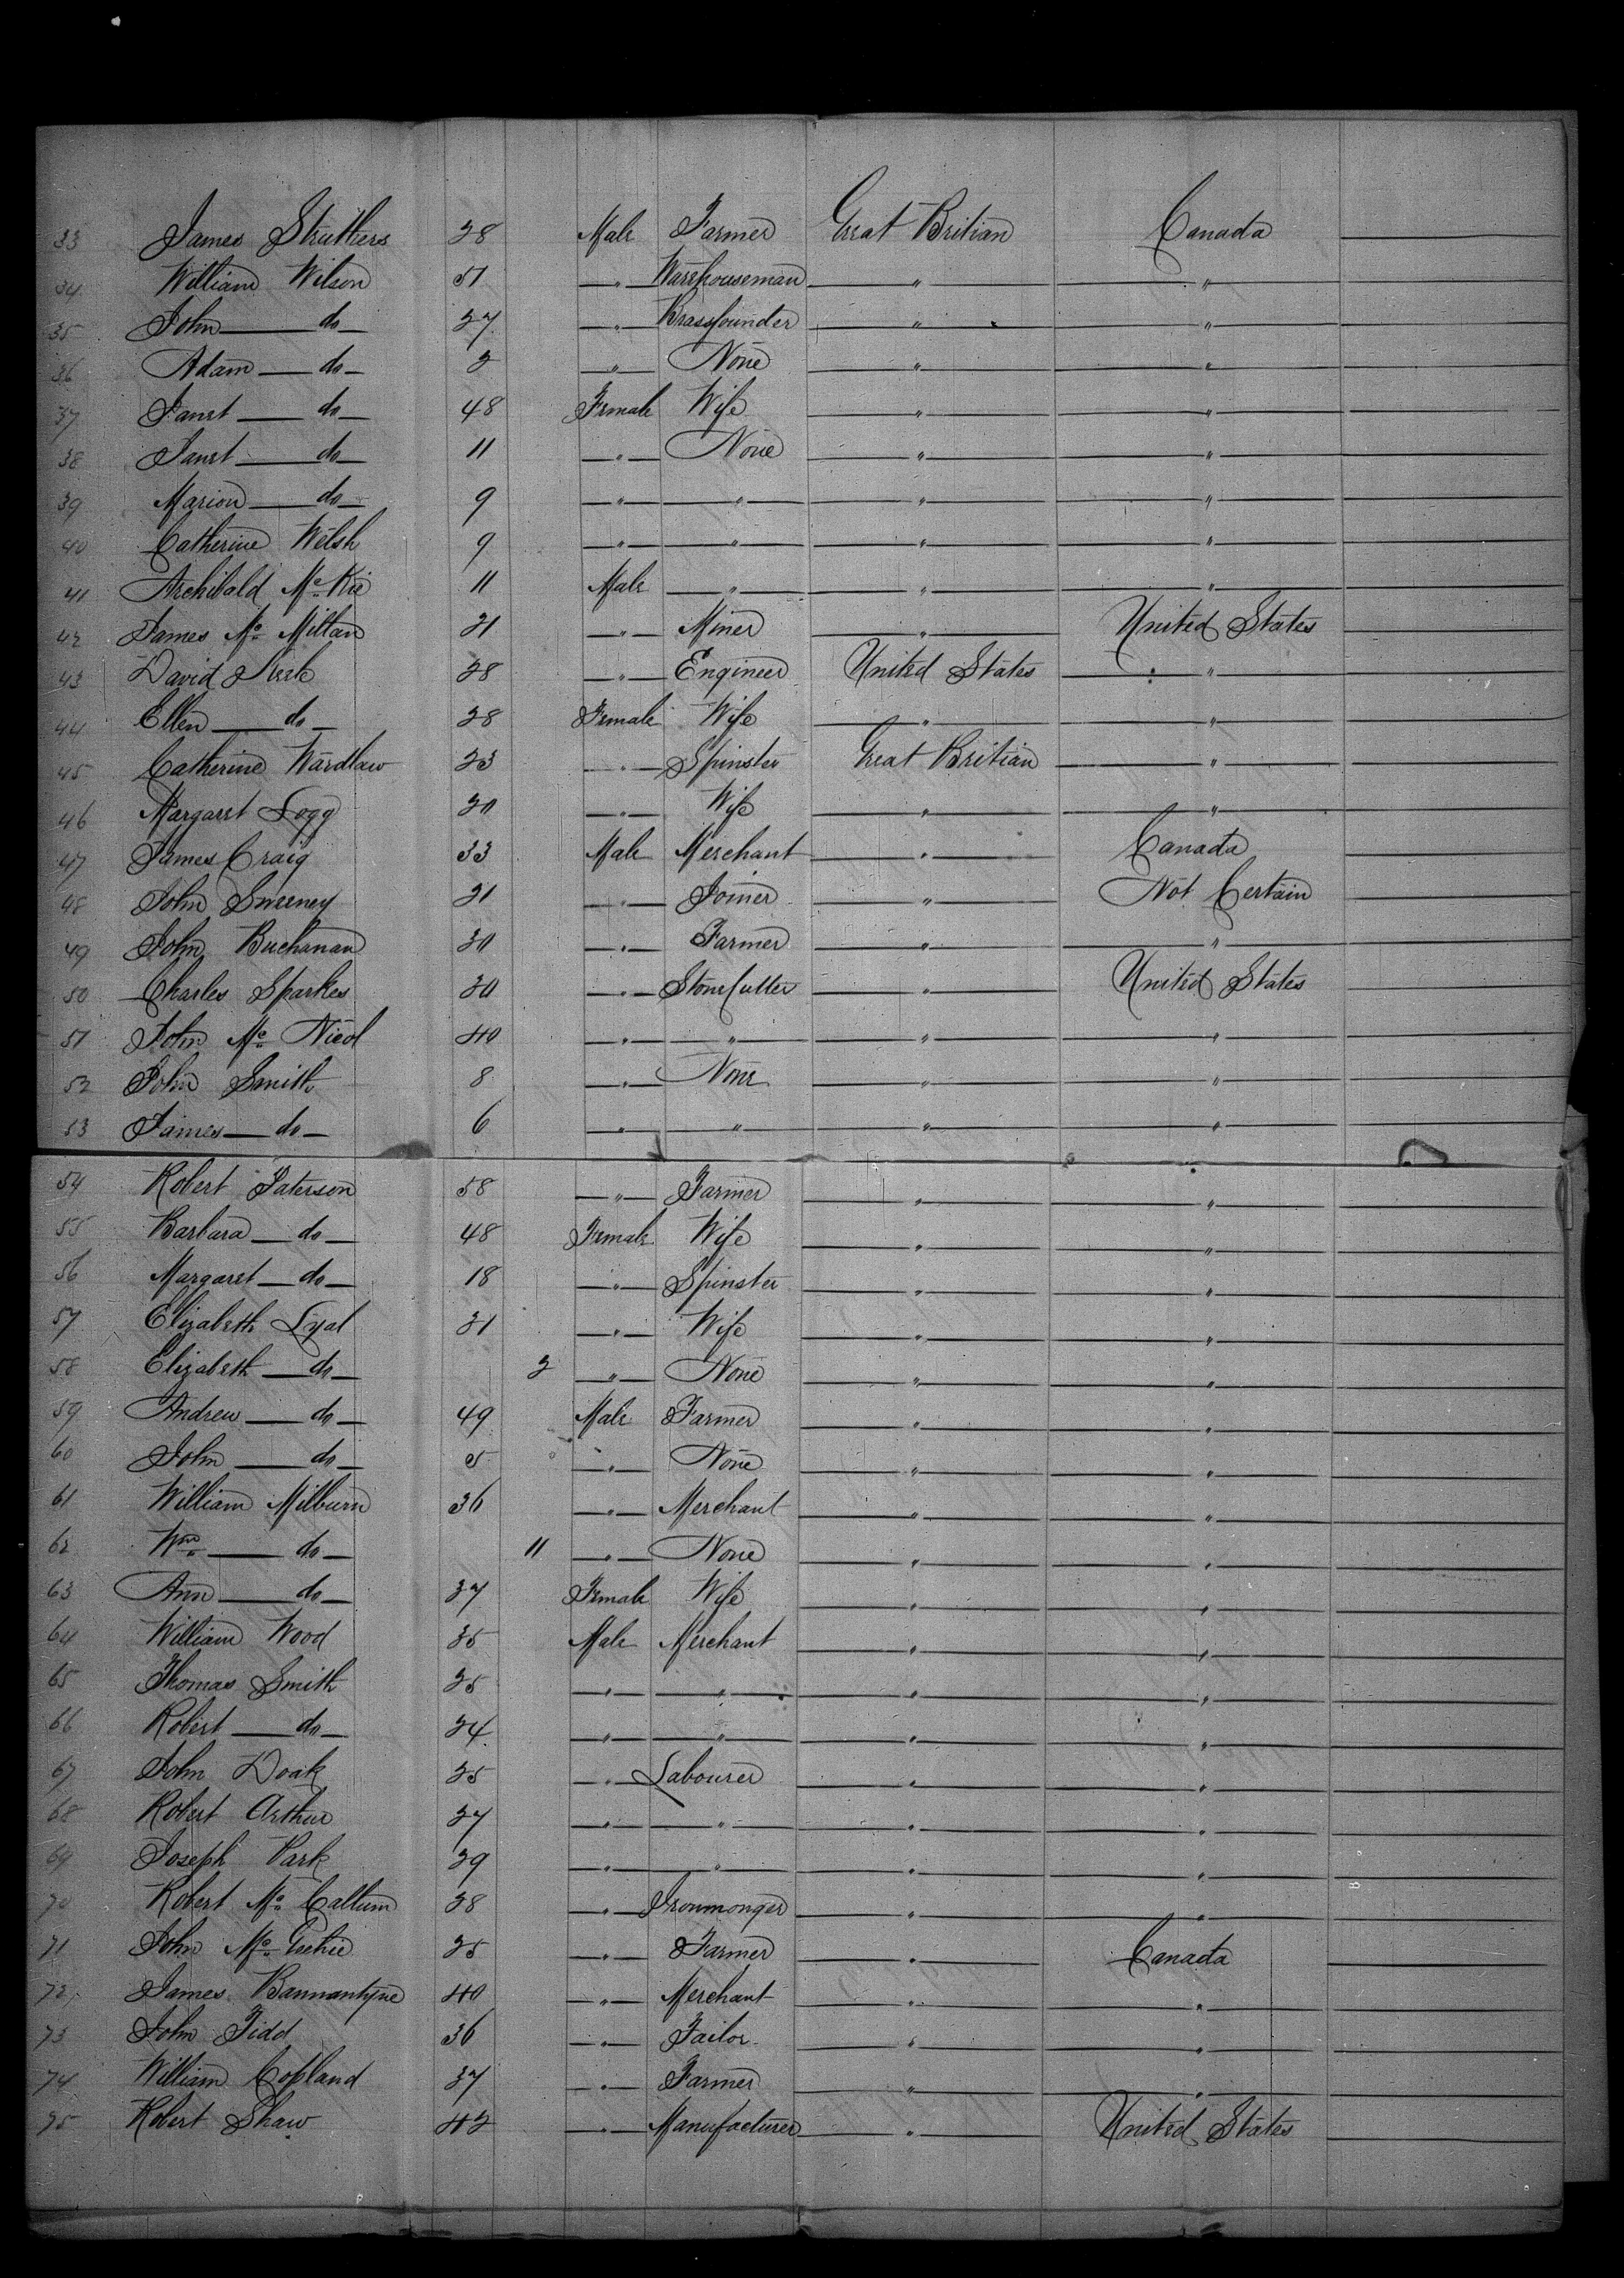 33 James Struthers 28 Male Farmer Great Britian Canada
34 William Wilson 51 " Warehouseman " "
35 John do 27 " Brassfounder " "
36 Adam do 2 " None " "
37 Janet do 48 Female Wife " "
38 Janet do 11 " None " "
39 Marion do 9 " " " "
40 Catherine Welsh 9 " " " "
41 Archibald Mc Kie 11 Male " " "
42 James Mc Millan 21 " Miner " United States
43 David 28 " Engineer United States "
44 Ellen do 28 Female Wife " "
45 Catherine Wardlaw 23 " Spinster Great Britian "
46 Margaret Logg 20 " Wife " "
47 James Craig 33 Male Merchant " Canada
48 John Sweeney 21 " Joiner " Not Certain
49 John Buchanan 30 " Farmer " "
50 Charles Sparkes 20 " Stone Cutter " United States
51 John Mc Nicol 40 " " " "
52 John Smith 8 " None " "
53 James do 6 " " " "
54 Robert Paterson 58 " Farmer " "
55 Barbara do 48 Female Wife " "
56 Margaret do 18 " Spinster " "
57 Elizabeth Lyal 31 " Wife " "
58 Elizabeth do 2 " None " "
59 Andrew do 49 Male Farmer " "
60 John do 5 " None " "
61 William Milburn 36 " Merchant " "
62 Wm do 11 " None " "
63 Ann do 37 Female Wife " "
64 William Wood 35 Male Merchant " "
65 Thomas Smith 25 " " " "
66 Robert do 24 " " " "
67 John Doak 25 " Labourer " "
68 Robert Arthur 27 " " " "
69 Joseph Park 29 " " " "
70 Robert Mc Callum 28 " Ironmonger " "
71 John Mc 25 " Farmer " Canada
72 James Bannantyne 40 " Merchant " "
73 John Tidd 36 " Tailor " "
74 William Copland 37 " Farmer " "
75 Robert Shaw 42 " Manufacturer " United States